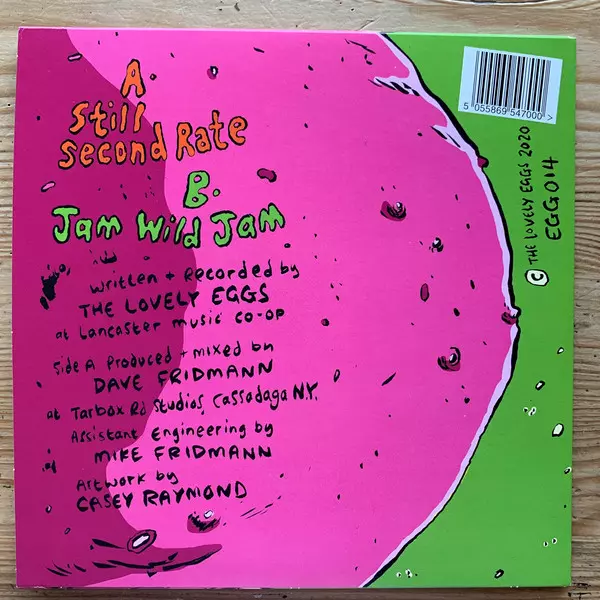 A.
Still
Second Rate
B.
Jam Wild Jam
Written + Recorded by
THE LOVELY EGGS
at Lancaster Music CO-OP
Side A Produced + mixed by
DAVE FRIDMANN
at Tarbox Rd Studios, Cassadaga N.Y.
Assistant Engineering by
MIKE FRIDMANN
Artwork by
CASEY RAYMOND
5 055869 547000 >
© THE LOVELY EGGS 2020
EGG014